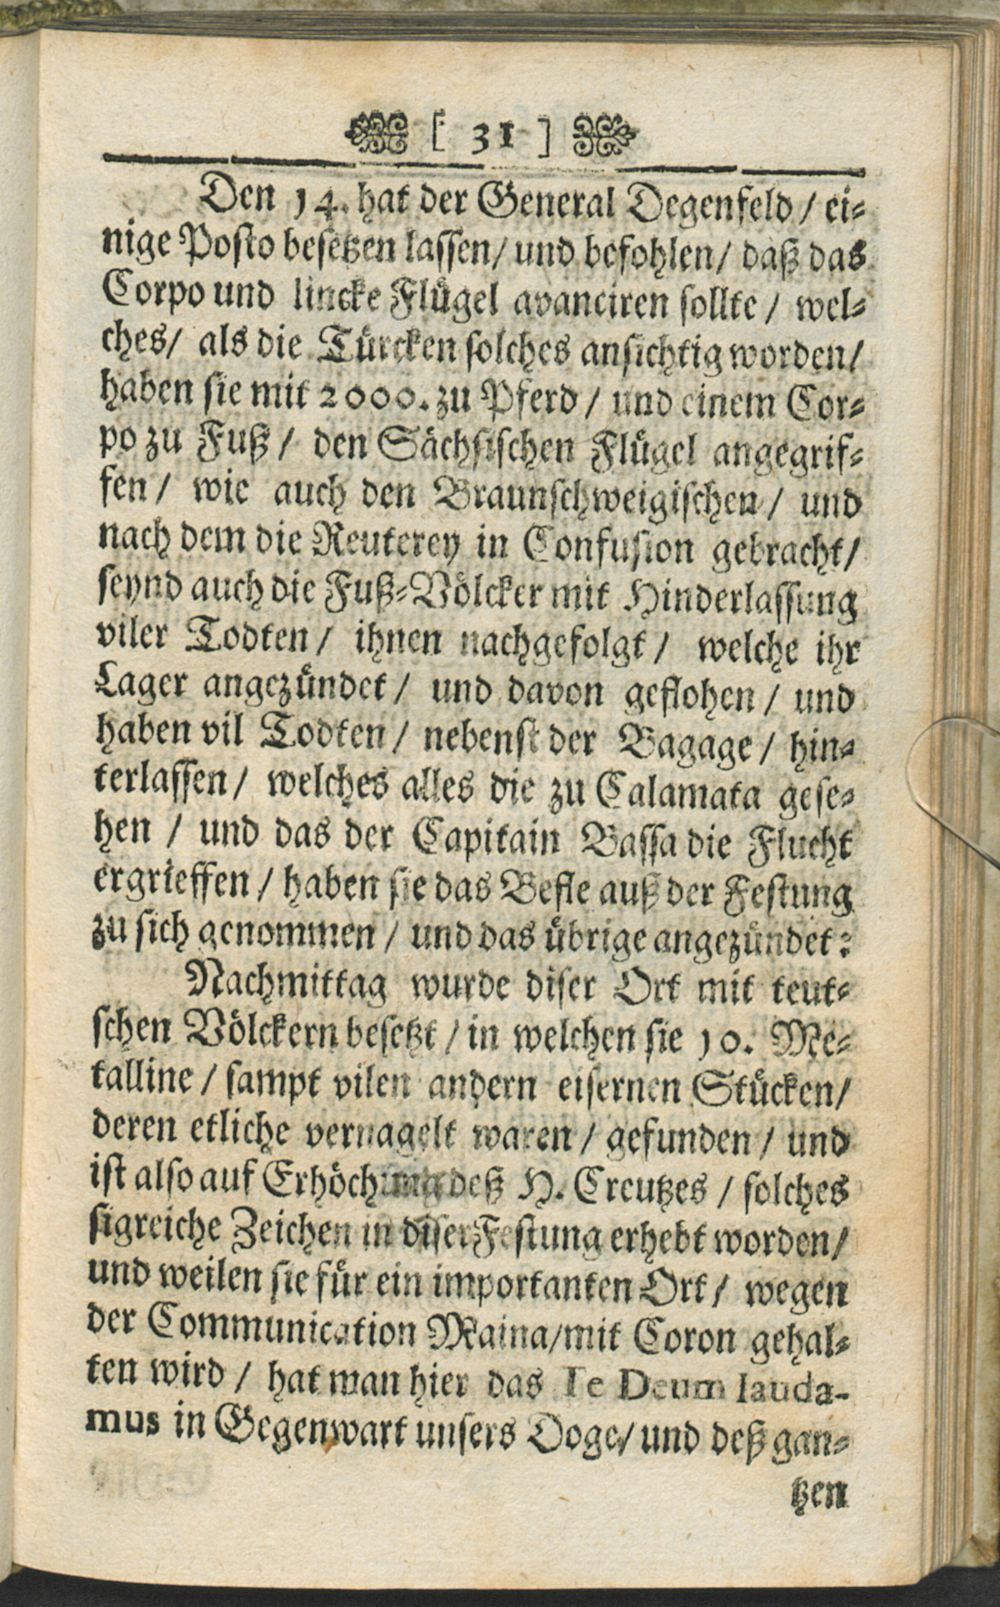 [ 31 ]
Den 14. hat der General Degenfeld / ei-
nige Posto besetzen lassen / und befohlen / daß das
Corpo und lincke Flügel avanciren sollte / wel-
ches / als die Türcken solches ansichtig worden /
haben sie mit 2000. zu Pferd / und einem Cor-
po zu Fuß / den Sächsischen Flügel angegrif-
fen / wie auch den Braunschweigischen / und
nach dem die Reuterey in Confusion gebracht /
seynd auch die Fuß-Völcker mit Hinderlassung
viler Todten / ihnen nachgefolgt / welche ihr
Lager angezündet / und davon geflohen / und
haben vil Todten / nebenst der Bagage / hin-
terlassen / welches alles die zu Calamata gese-
hen / und das der Capitain Bassa die Flucht
ergrieffen / haben sie das Beste auß der Festung
zu sich genommen / und das übrige angezündet:
Nachmittag wurde diser Ort mit teut-
schen Völckern besetzt / in welchen sie 10. Me-
talline / sampt vilen andern eisernen Stücken /
deren etliche vernagelt waren / gefunden / und
ist also auf Erhöchung deß H. Creutzes / solches
sigreiche Zeichen in diser Festung erhebt worden /
und weilen sie für ein importanten Ort / wegen
der Communication Maina / mit Coron gehal-
ten wird / hat man hier das Te Deum lauda-
mus in Gegenwart unsers Doge / und deß gan-
tzen